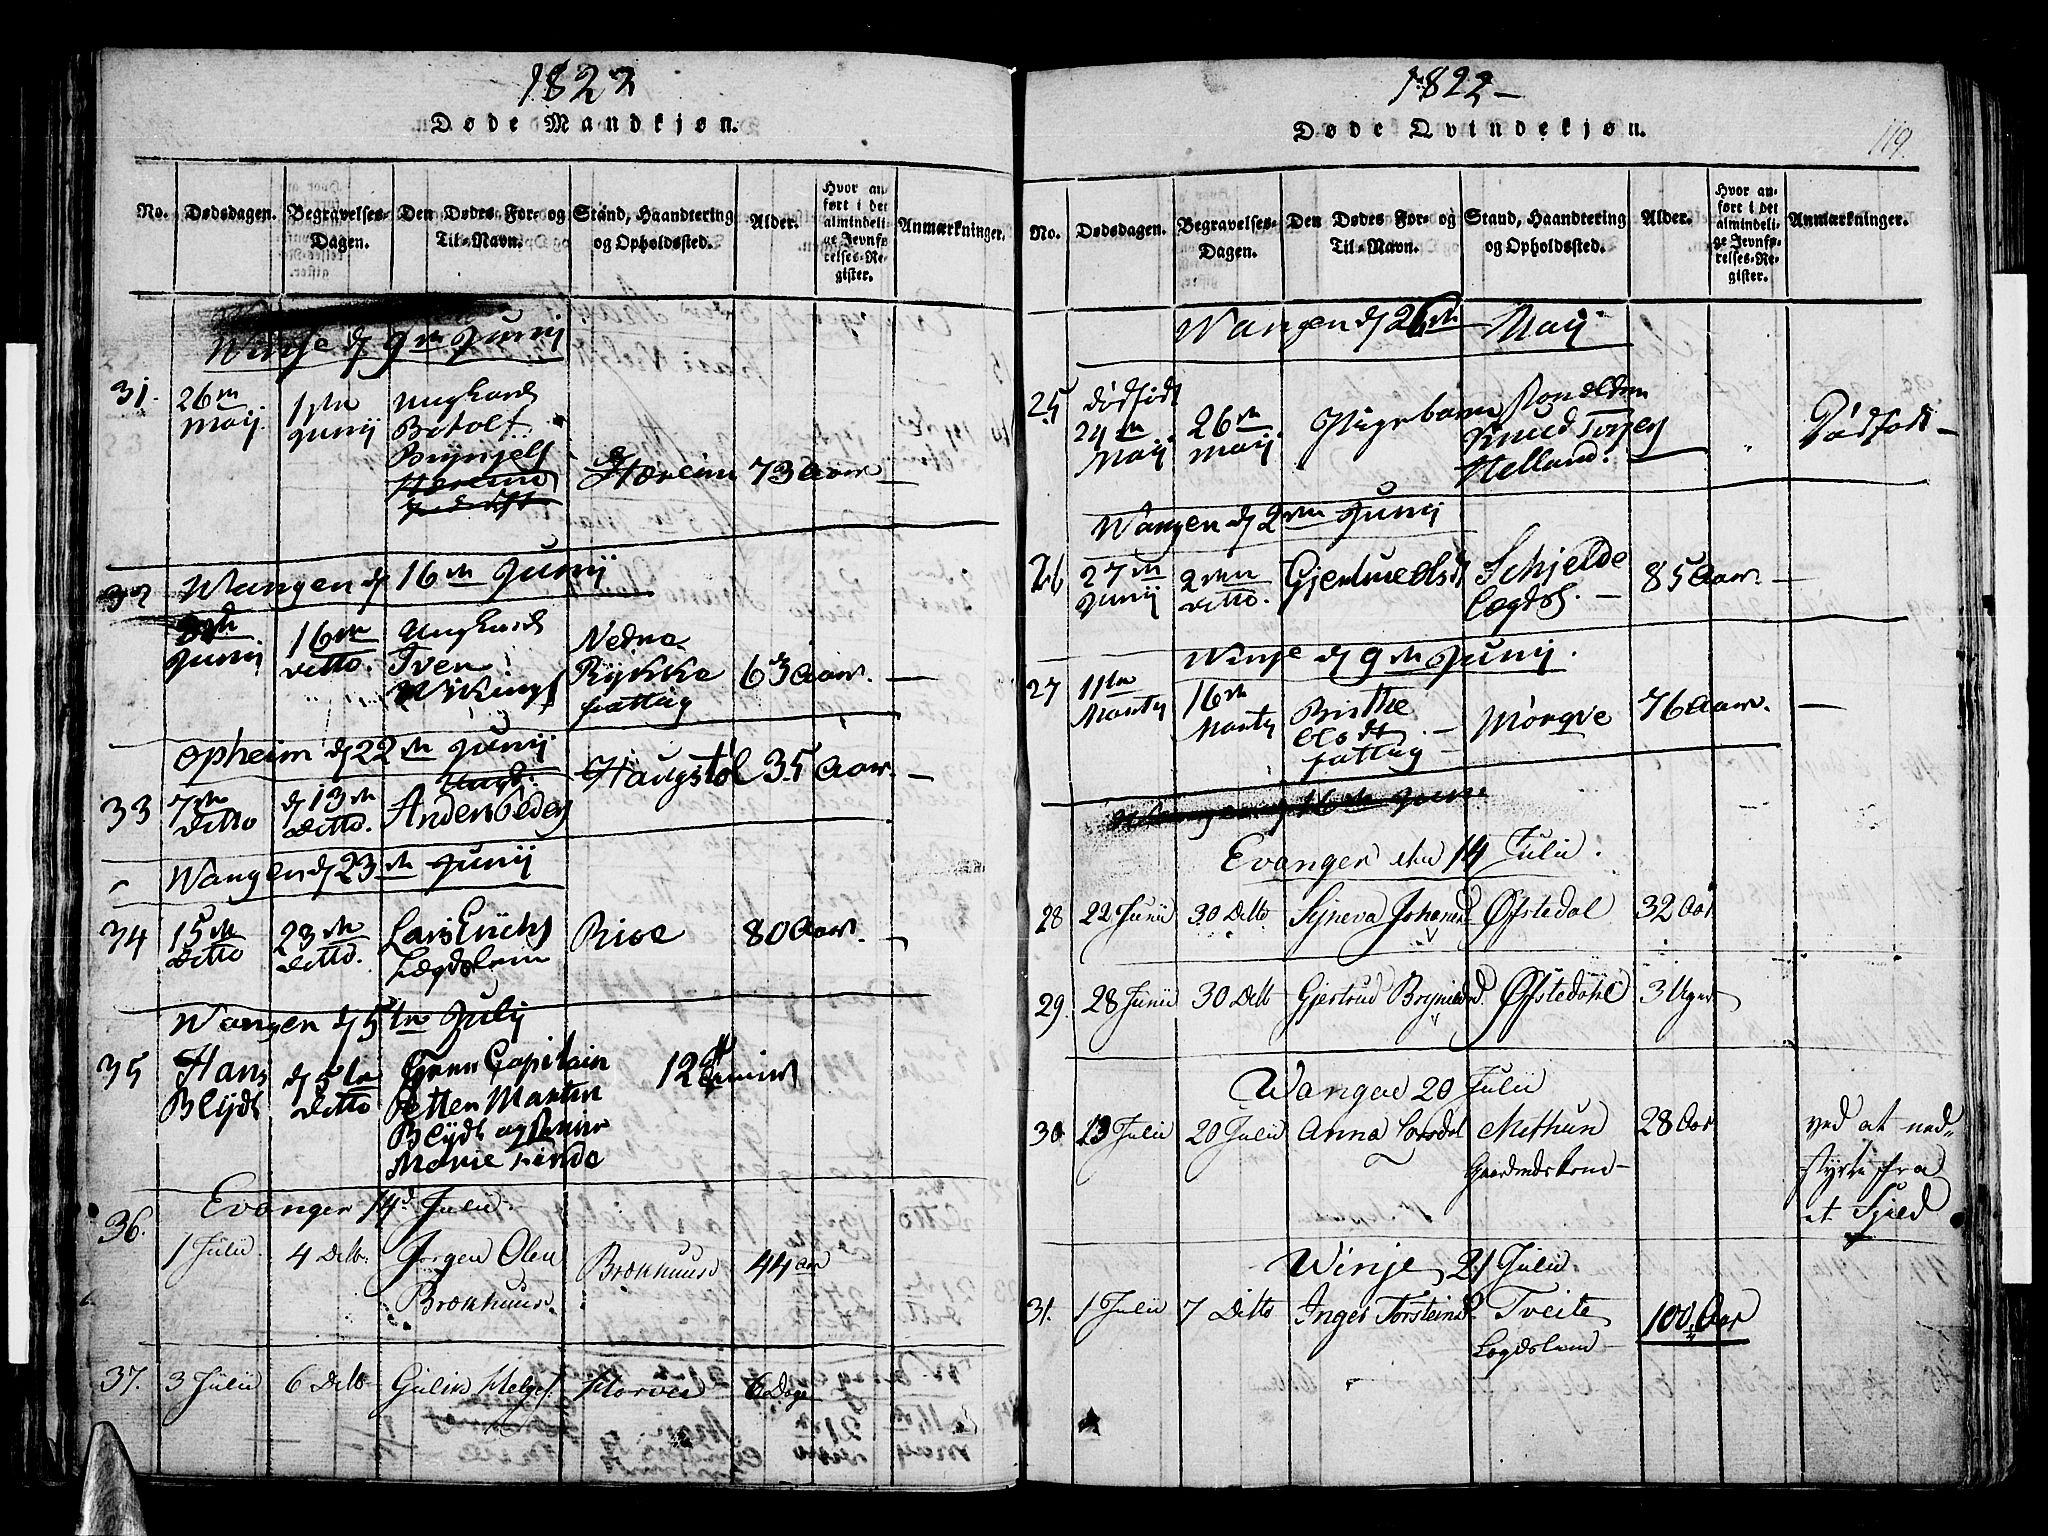 1822
Døde Mandkjøn.
No.
Dødsdagen.
Begravelses-
Dagen.
Den Dødes For- og
Til-Navn.
Stand, Haandtering
og Opholdssted.
Alder.
Hvor an-
ført i det
almindeli-
ge Jevnfø-
relses-Re-
gister.
Anmærkninger.
Winje d 9de Junij
31.
26de
Maij
1ste
Junij
Ungkarl
Botolf
Brynjels
Hæreim
73 Aar
Wangen d 16de Junij
32
Junij
16de
ditto.
Ungkarl
Iver
Wikings
Nedre
Rykke
fattig
63 Aar.
Opheim d 22de Junij
33
7de
ditto
d 13de
ditto.
Ungk.
Anders Odds
Haugstøl
35 Aar.
Wangen d 23de Junij
34
15de
ditto
23de
ditto.
Lars Erichs
Lægdslem
Rise
80 Aar.
Wangen d 5te Julij
35
Hans
Blydt
d 5te
ditto
Herr Capitain
Petter Martin
Blydt og
Marie Finde
12
Evanger 14d Julii
36.
1 Julii
4 Ditto
Jørgen Olsen
Brækhuus
Brækhuus
44 Aar
37.
3 Julii
6 Ditto
Gulik Helges.
Horvei
6 Dage
1822
Døde Qvindekjøn.
119.
No.
Dødsdagen.
Begravelses-
Dagen.
Den Dødes For- og
Til-Navn.
Stand, Haandtering
og Opholdssted.
Alder.
Hvor an-
ført i det
almindeli-
ge Jevnfø-
relses-Re-
gister.
Anmærkninger.
Wangen d 26de Maij
25
dødfødt
24de
Maij
26de
Maij
Pigebarn
Knud
Helland.
Dødfødt
Wangen d 2den Junij
26
27de
Junij
2den
ditto.
Schjelde
Lægdsl.
85 Aar.
Winje d 9de Junij.
27
11te
Marty
16de
Marty
Brithe
fattig
Mørqve
76 Aar.
Wangen d 16de Junij
Evanger den 14 Julii.
28
22 Junii
30 Ditto
Syneva Johansd
Øfstedal
32 Aar
29.
28 Junii
30 Ditto
Gjertrud Brynielsd.
Øfstedahl
3 Uger
Wangen 20 Julii
30
13 Julii
20 Julii
Anna Larsdol
Methun
Gaardmdskone
28 Aar
ved at ned-
styrte fra
et Fjeld
Winje 21 Julii
31.
1 Julii
7 Ditto
Inger Torsteinsd.
Tveite
Lægdslem
100 Aar